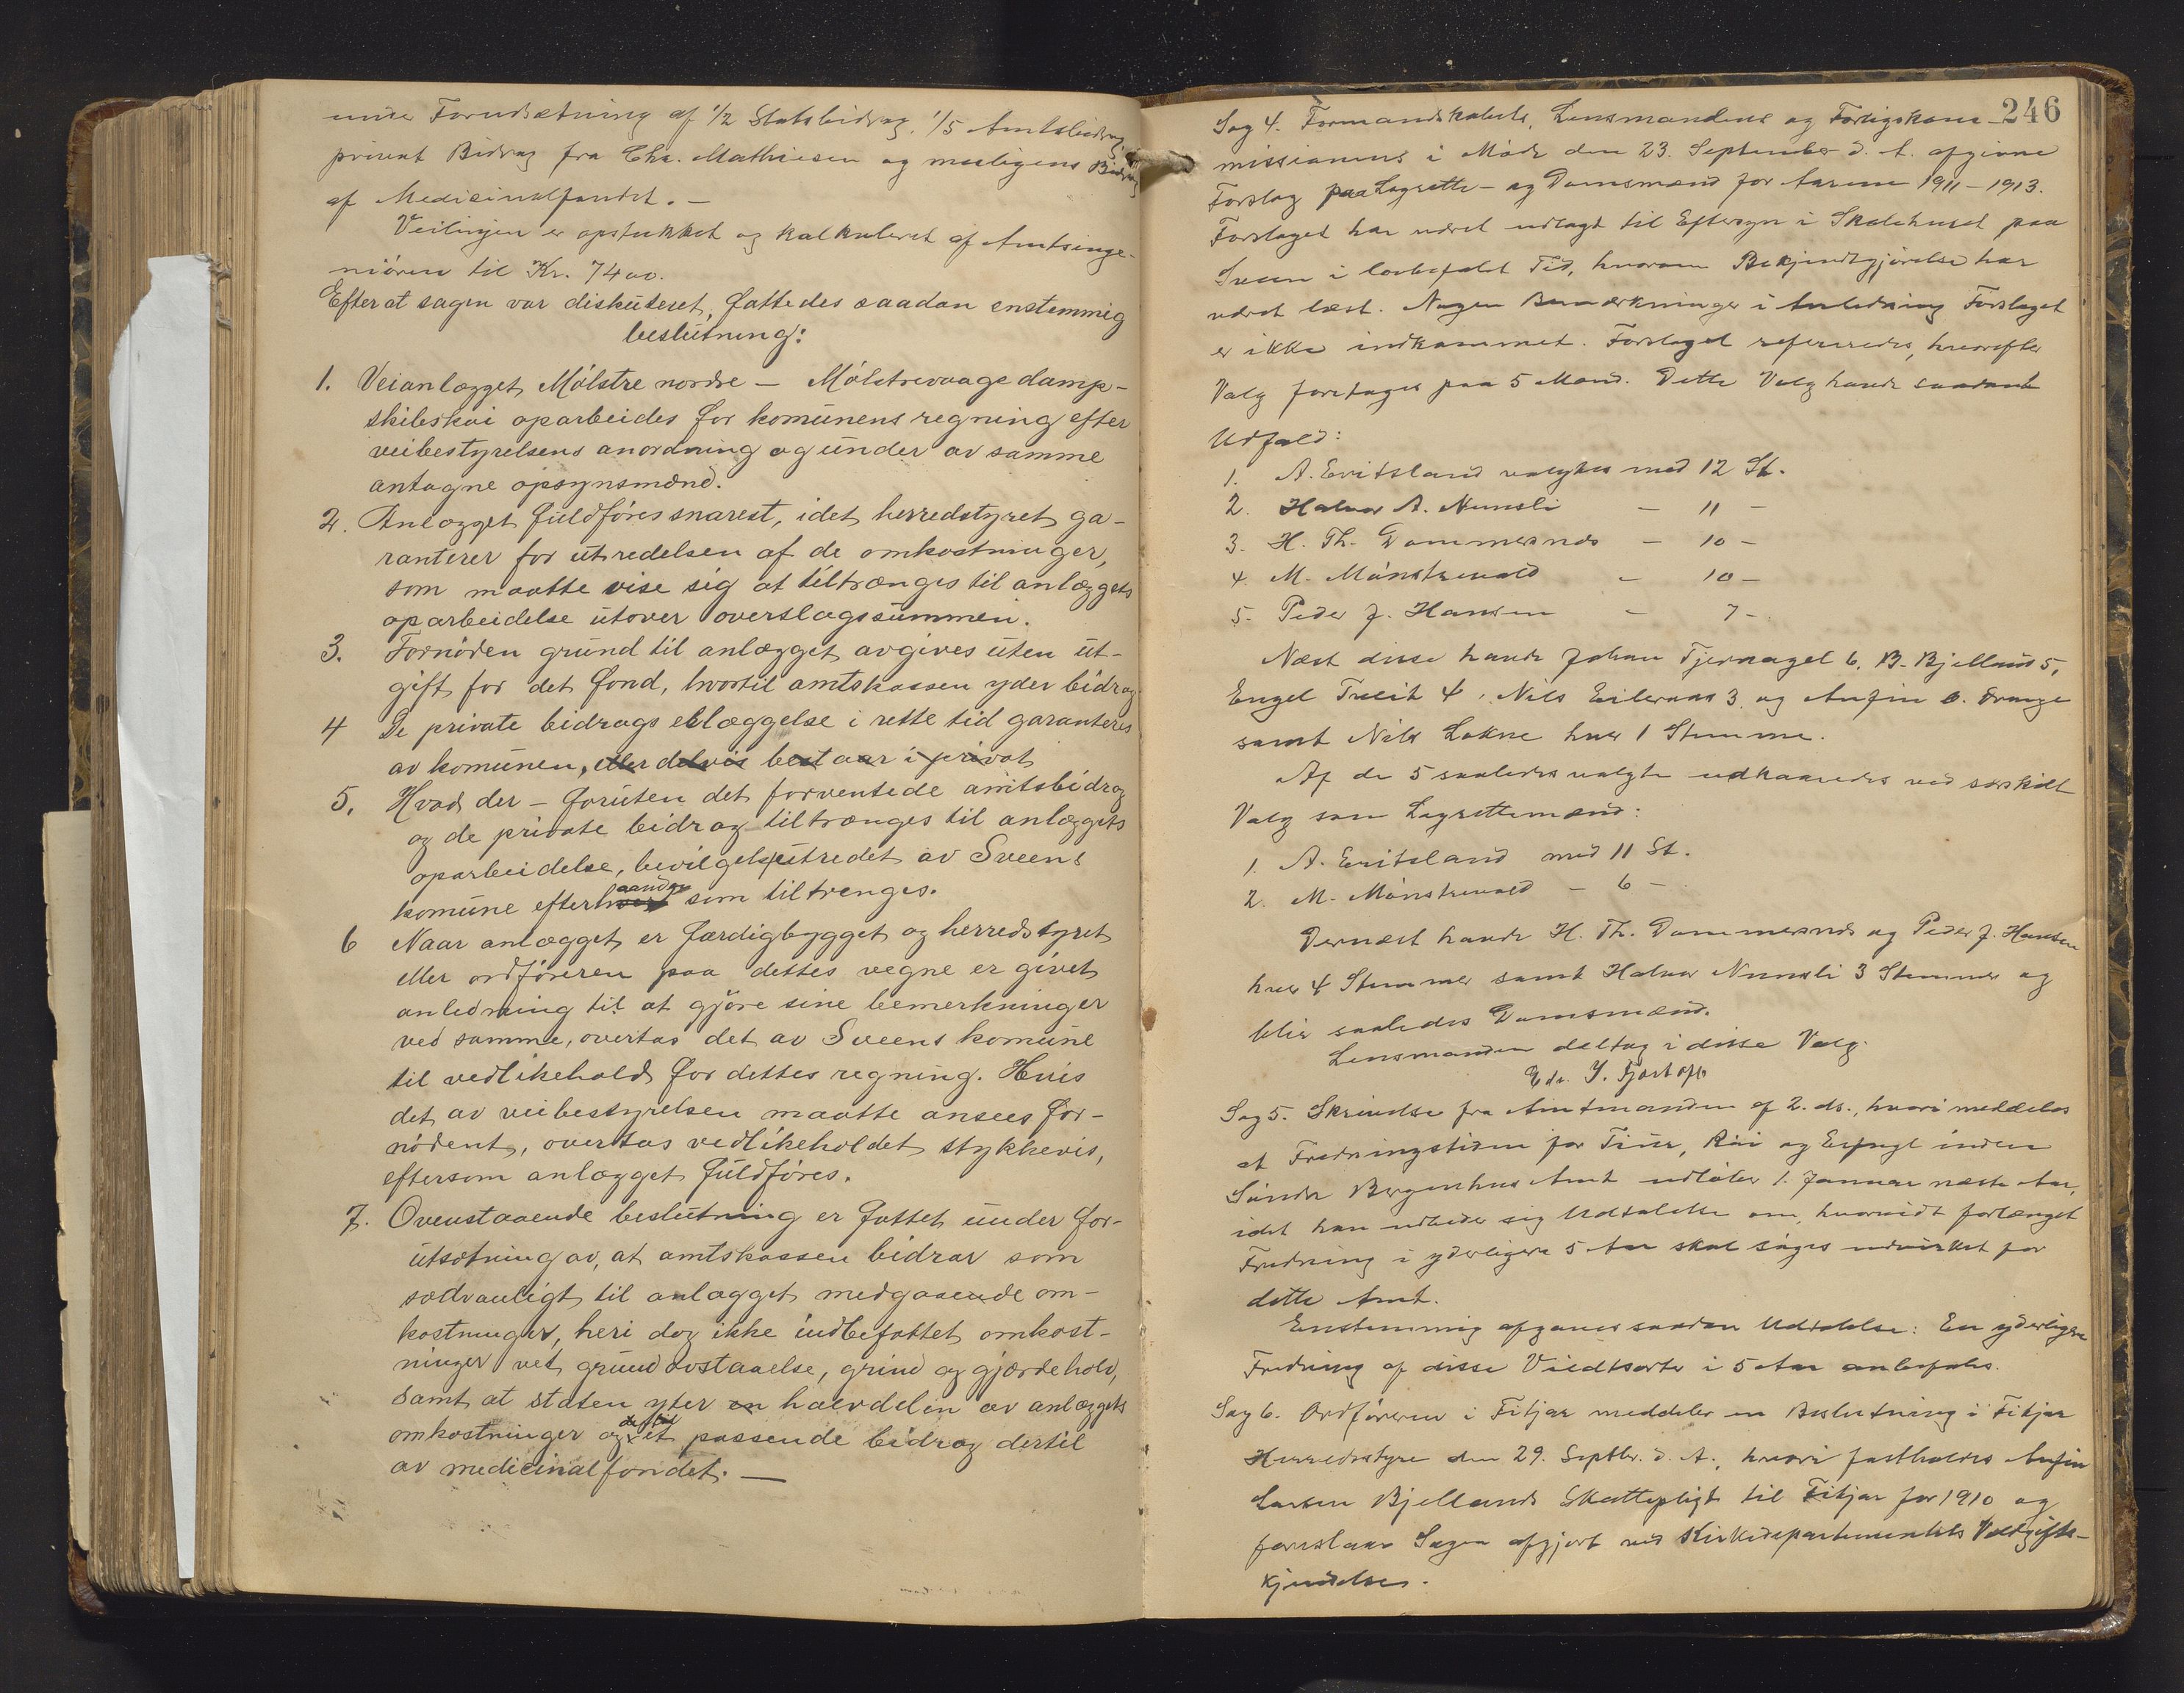 under Forudsætning af 1/2 Statsbidrag, 1/5 Amtsbidrag,
privat Bidrag fra Chr. Mathiesen og muligens Bidrag
af Medicinalfondet. –
Veilinjen er opstukket og kalkuleret af Amtsinge-
niøren til Kr. 7400.
Efterat sagen var diskuteret, fattedes saadan enstemmig
beslutning:
1. Veianlægget Mølstre nordre – Mølstrevaage damp-
skibskai oparbeides for komunens regning efter
veibestyrelsens anordning og under av samme
antagne opsynsmænd.
2. Anlægget fuldføres snarest, idet herredstyret ga-
ranterer for utredelsen af de omkostninger,
som maatte vise sig at tiltrænges til anlæggets
oparbeidelse utover overslagssummen.
3. Fornøden grund til anlægget avgives uten ut-
gift for det fond, hvortil amtskassen yder bidrag
4 De private bidrags erlæggelse i rette tid garanteres
av komunen, eller delvis bestaar i privat
5. Hvad der – foruten det forventede amtsbidrag
og de private bidrag tiltrænges til anlæggets
oparbeidelse, bevilges utredet av Sveens
komune efterhaanden som tiltrenges.
6 Naar anlægget er færdigbygget og herredstyret
eller ordføreren paa dettes vegne er givet
anledning til at gjøre sine bemerkninger
ved samme, overtas det av Sveens komune
til vedlikehold for dettes regning. Hvis
det av veibestyrelsen maatte ansees for-
nødent, overtas vedlikeholdet stykkevis,
eftersom anlægget fuldføres.
7. Ovenstaaende beslutning er fattet under for-
utsætning av, at amtskassen bidrar som
sedvanligt til anlægget medgaaende om-
kostninger, heri dog ikke indbefattet omkost-
ninger ved grundavstaaelse, grind og gjærdehold,
samt at staten yter en halvdelen av anlæggets
omkostninger og et passende bidrag dertil
av medicinalfondet. –
246
Sag 4. Formandskabets, Lensmandens og Forligskom-
missionens i Møde den 23. September d. A. afgivne
Forslag paa Lagrette- og Domsmænd for Aarene 1911-1913.
Forslaget har været udlagt til Eftersyn i Skolehuset paa
Sveen i lovbefalet Tid, hvorom Bekjendtgjørelse har
været læst. Nogen Bemærkninger i Anledning Forslaget
er ikke indkommet. Forslaget refereredes, hvorefter
Valg foretages paa 5 Mænd. Dette Valg havde saadant
Udfald:
1. A. Evitsland valgtes med 12 St.
2. Halvor A. Nernsli – 11 –
3. H. Th. Dommersnes – 10 –
4. M. Mønstrevold – 10 –
5. Peder J. Hansen – 7 –
Næst disse havde Johan Tjernagel 6, B. Bjelland 5,
Engel Tveit 4, Nils Eileraas 3 og Anfin O. Orange
samt Nils Løkne hver 1 Stemme.
Af de 5 saaledes valgte udkaaredes ved særskilt
Valg som Lagrettemænd:
1. A. Evitsland med 11 St.
2. M. Mønstrevold – 6 –
Dernæst havde H. Th. Dommersnes og Peder J. Hansen
hver 4 Stemmer samt Halvor Nernsli 3 Stemmer og
blir saaledes Domsmænd.
Lensmanden deltog i disse Valg.
Edv.
Sag 5. Skrivelse fra Amtmanden af 2. ds., hvori meddeles
at Fredningstiden for Tiur, Røi og Erfugl inden
Søndre Bergenhus Amt udløber 1. Januar næste Aar,
idet han udbeder sig Udtalelse om, hvorvidt forlænget
Fredning i yderligere 5 Aar skal søges udvirket for
dette Amt.
Enstemmig afgaves saadan Udtalelse: En yderligere
Fredning af disse Vildtsorter i 5 Aar anbefales.
Sag 6. Ordføreren i Fitjar meddeler en Beslutning i Fitjar
Herredsstyre den 29. Septbr. d. A., hvori fastholdes Anfin
Larsen Bjellands Skattepligt til Fitjar for 1910 og
foreslaar Sagen afgjort ved Kirkedepartementets Voldgifts-
kjendelse.